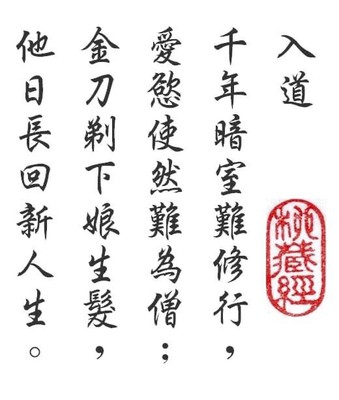 入道
千年暗室難修行，
愛慾使然難為僧；
金刀剃下娘生髮，
他日長回新人生。
秘藏經